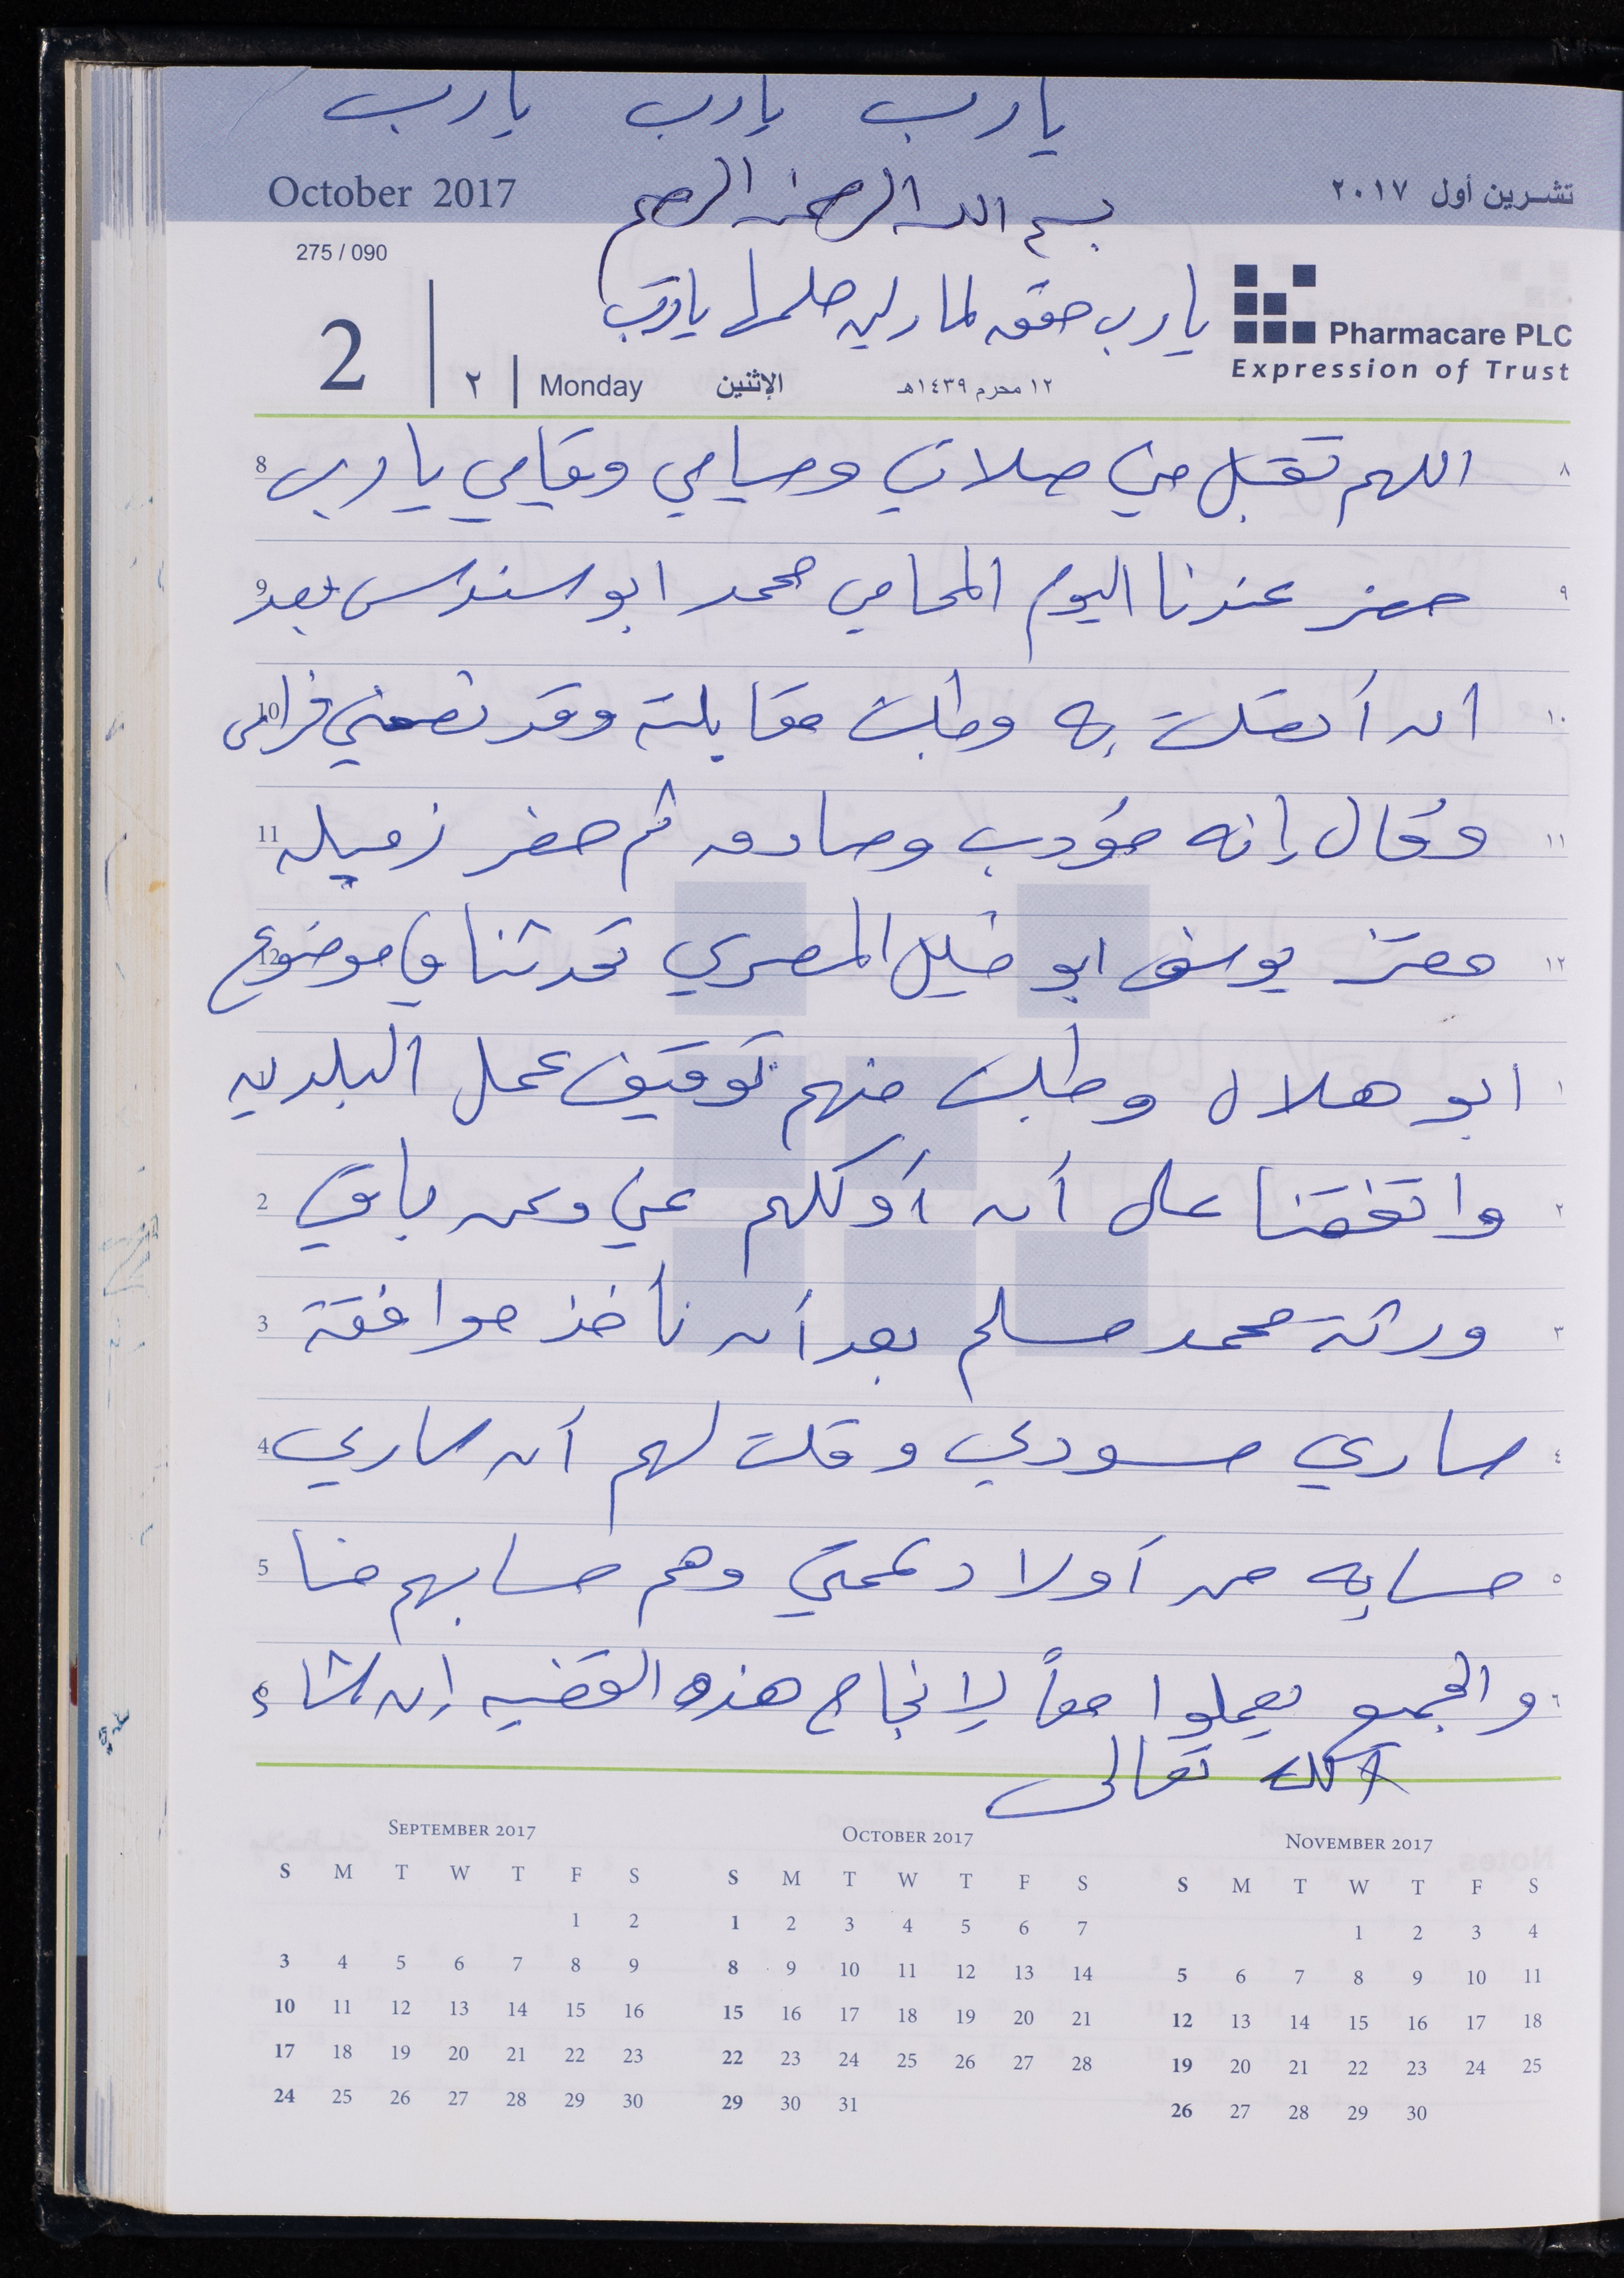 يا رب يا رب يا رب
October 2017
تشرين أول ٢٠١٧
بسم الله الرحمن الرحيم
275 / 090
يا رب حقق لمارلين حلمها يا رب
Pharmacare PLC
Expression of Trust
2 | ٢ | Monday الإثنين ١٢ محرم ١٤٣٩هـ
8 اللهم تقبل مني صلاتي وصيامي وقيامي يا رب ٨
9 حضر عندنا اليوم المحامي محمد ابو سندس بعد ٩
10 ان أتصلت به وطلبت مقابلته وقد نصحني فراس ١٠
11 وقال إنه مؤدب وصادق ثم حضر زميله ١١
12 معتز يوسف ابو خليل المصري تحدثنا في موضوع ١٢
ابو هلال وطلبت منهم توقيف عمل البلديه ١
2 واتفقنا على أن أوكلهم عني وعن باقي ٢
3 ورثة محمد مسلم بعد أن نأخذ موافقة ٣
4 ساري مسودي وقلت لهم أن ساري ٤
5 حسابه من أولاد عمتي وهم حسابهم منا ٥
6 والجميع يعملوا معاً لإنجاح هذه القضيه إن شاء ٦
الله تعالى
SEPTEMBER 2017
S M T W T F S
1 2
3 4 5 6 7 8 9
10 11 12 13 14 15 16
17 18 19 20 21 22 23
24 25 26 27 28 29 30
OCTOBER 2017
S M T W T F S
1 2 3 4 5 6 7
8 9 10 11 12 13 14
15 16 17 18 19 20 21
22 23 24 25 26 27 28
29 30 31
NOVEMBER 2017
S M T W T F S
1 2 3 4
5 6 7 8 9 10 11
12 13 14 15 16 17 18
19 20 21 22 23 24 25
26 27 28 29 30